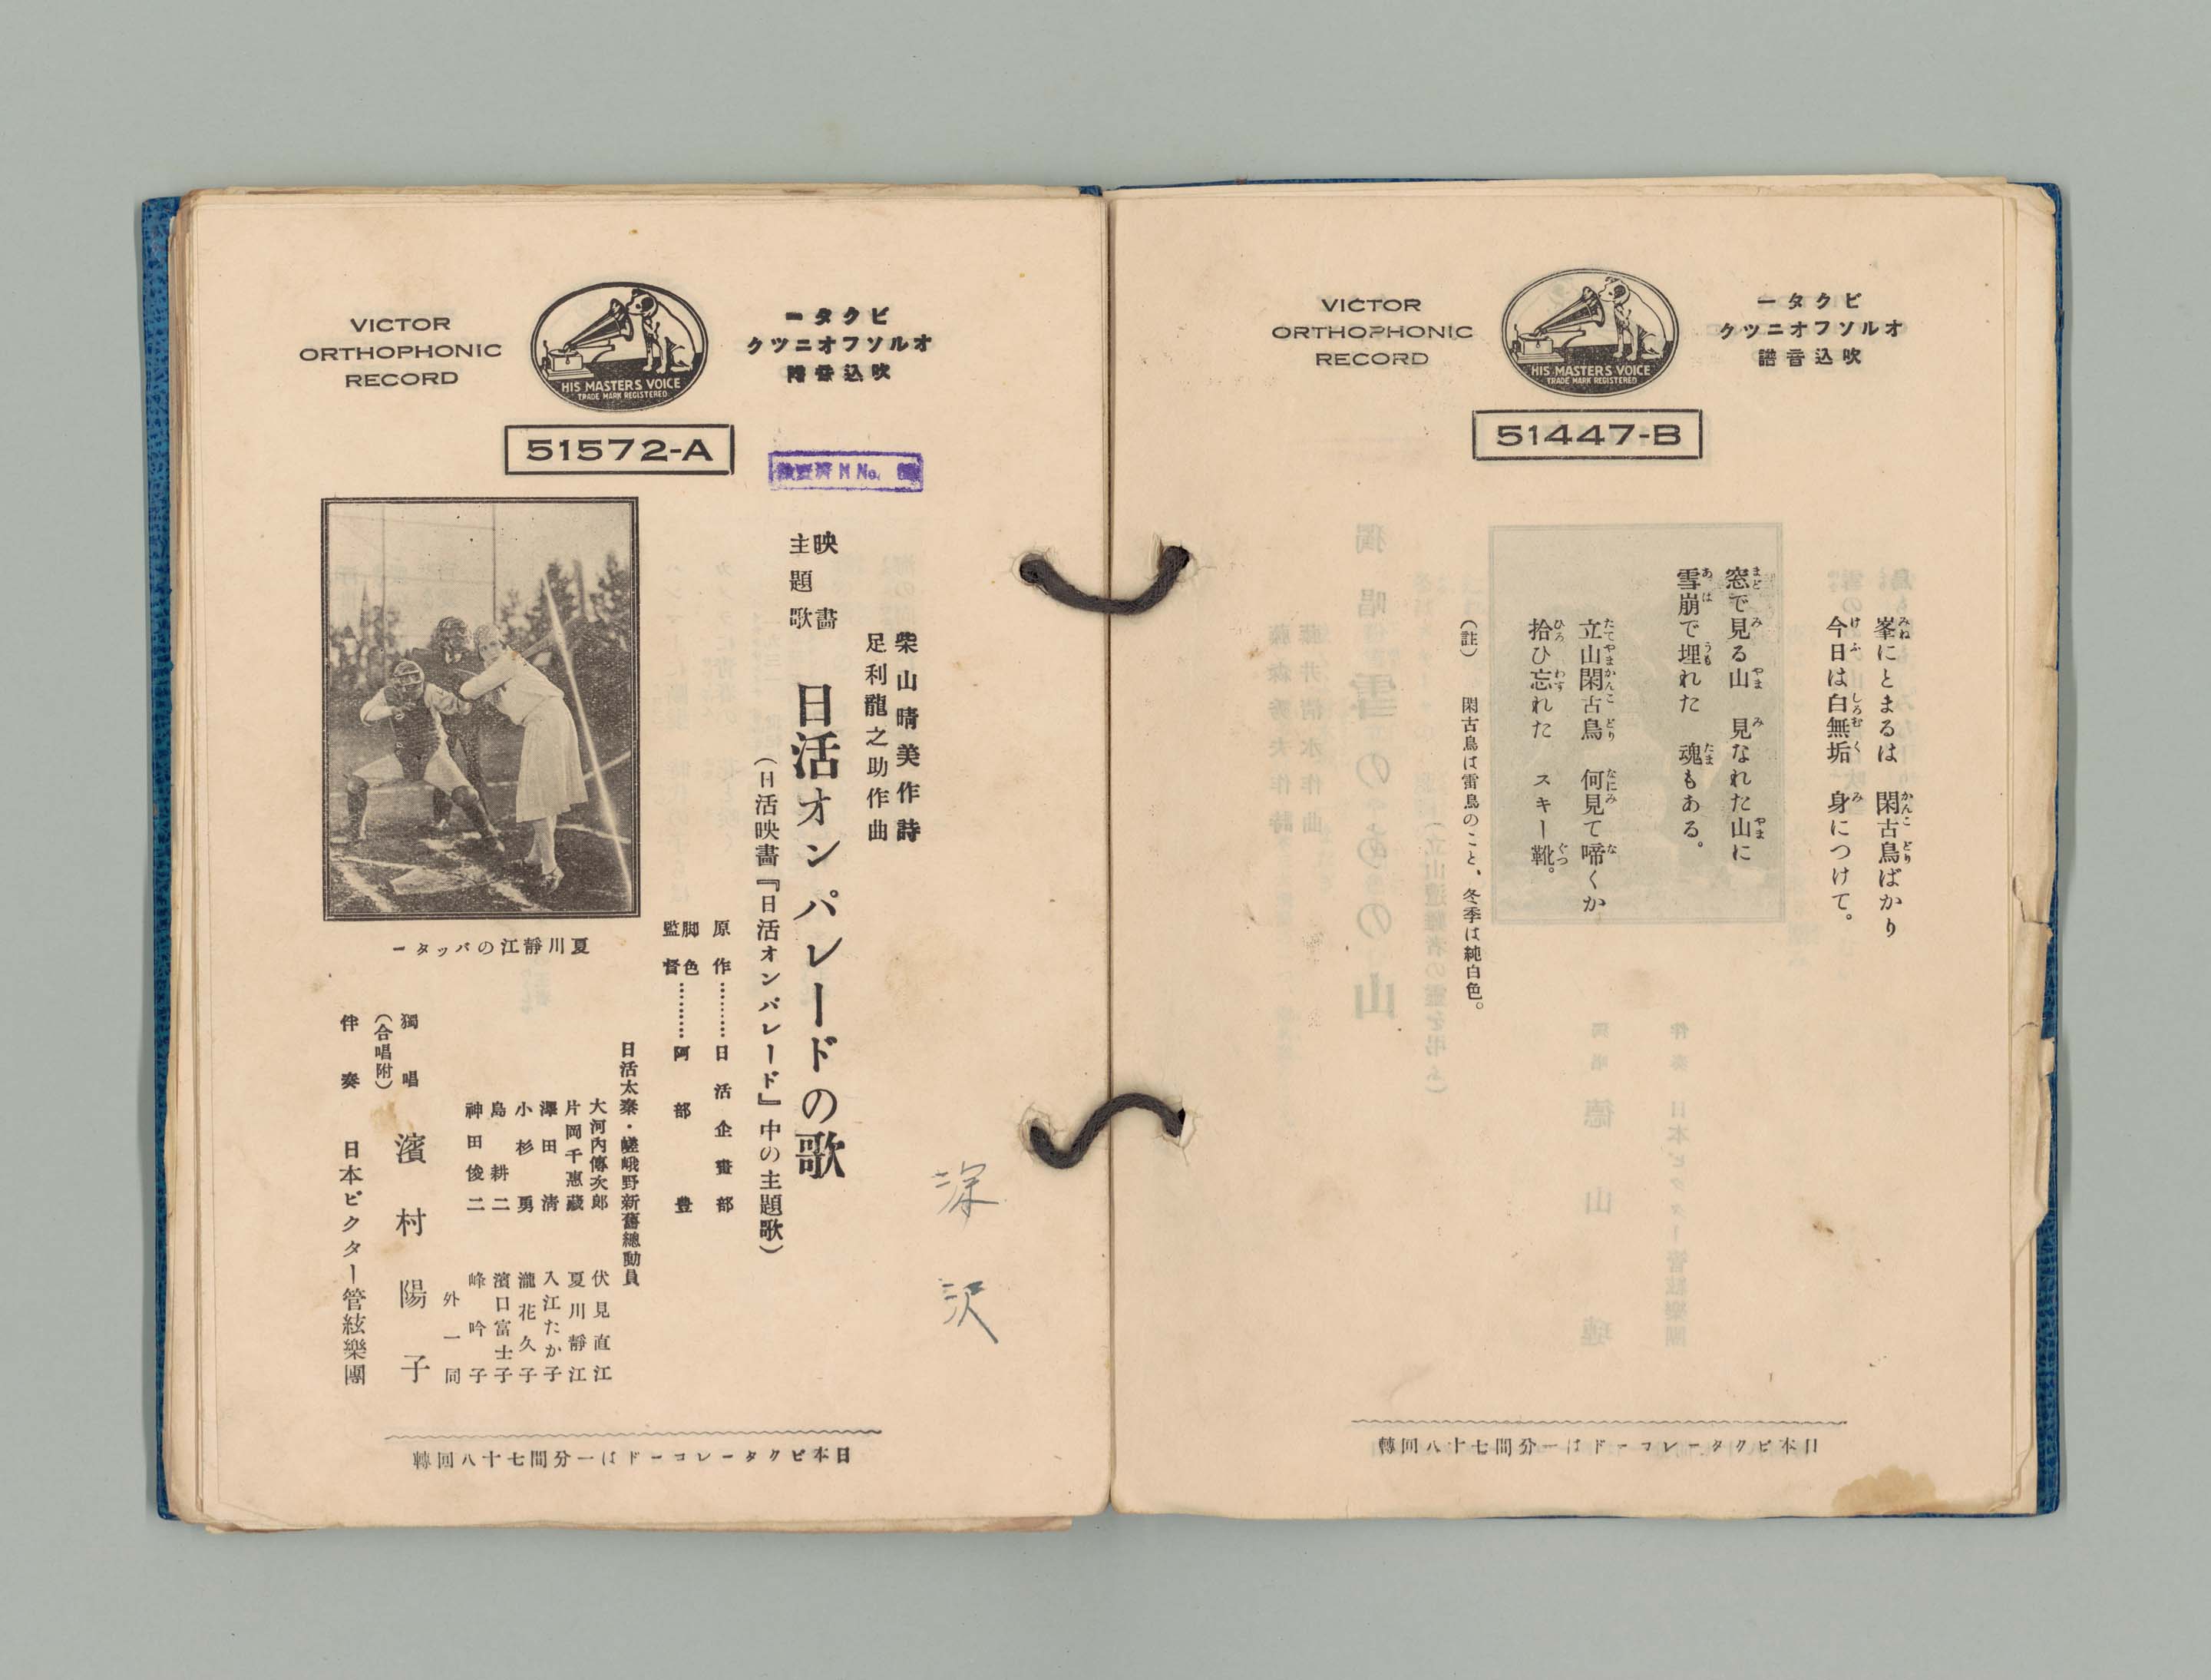 VICTOR
ORTHOPHONIC
RECORD
HIS MASTER'S VOICE
TRADE MARK REGISTERED
ビクター
オルソフオニツク
吹込音譜
51447-B
峯にとまるは 閑古鳥ばかり
今日は白無垢 身につけて。
窓で見る山 見なれた山に
雪崩で埋れた 魂もある。
立山閑古鳥 何見て啼くか
拾ひ忘れた スキー靴。
(註) 閑古鳥は雷鳥のこと、冬季は純白色。
日本ビクターレコードは一分間七十八回轉
VICTOR
ORTHOPHONIC
RECORD
HIS MASTER'S VOICE
TRADE MARK REGISTERED
ビクター
オルソフオニツク
吹込音譜
51572-A
柴山晴美作詩
足利龍之助作曲
映畫
主題歌
日活オンパレードの歌
(日活映畫『日活オンパレード』中の主題歌)
原作………日活企畫部
脚色
監督………阿部豊
日活太秦・嵯峨野新舊總動員
大河內傳次郎 伏見直江
片岡千惠藏 夏川靜江
澤田淸 入江たか子
小杉勇 瀧花久子
島耕二 濱口富士子
神田俊二 峰吟子
外一同
獨唱 濱村陽子
(合唱附)
伴奏 日本ビクター管絃樂團
夏川靜江のバッター
深沢
日本ビクターレコードは一分間七十八回轉